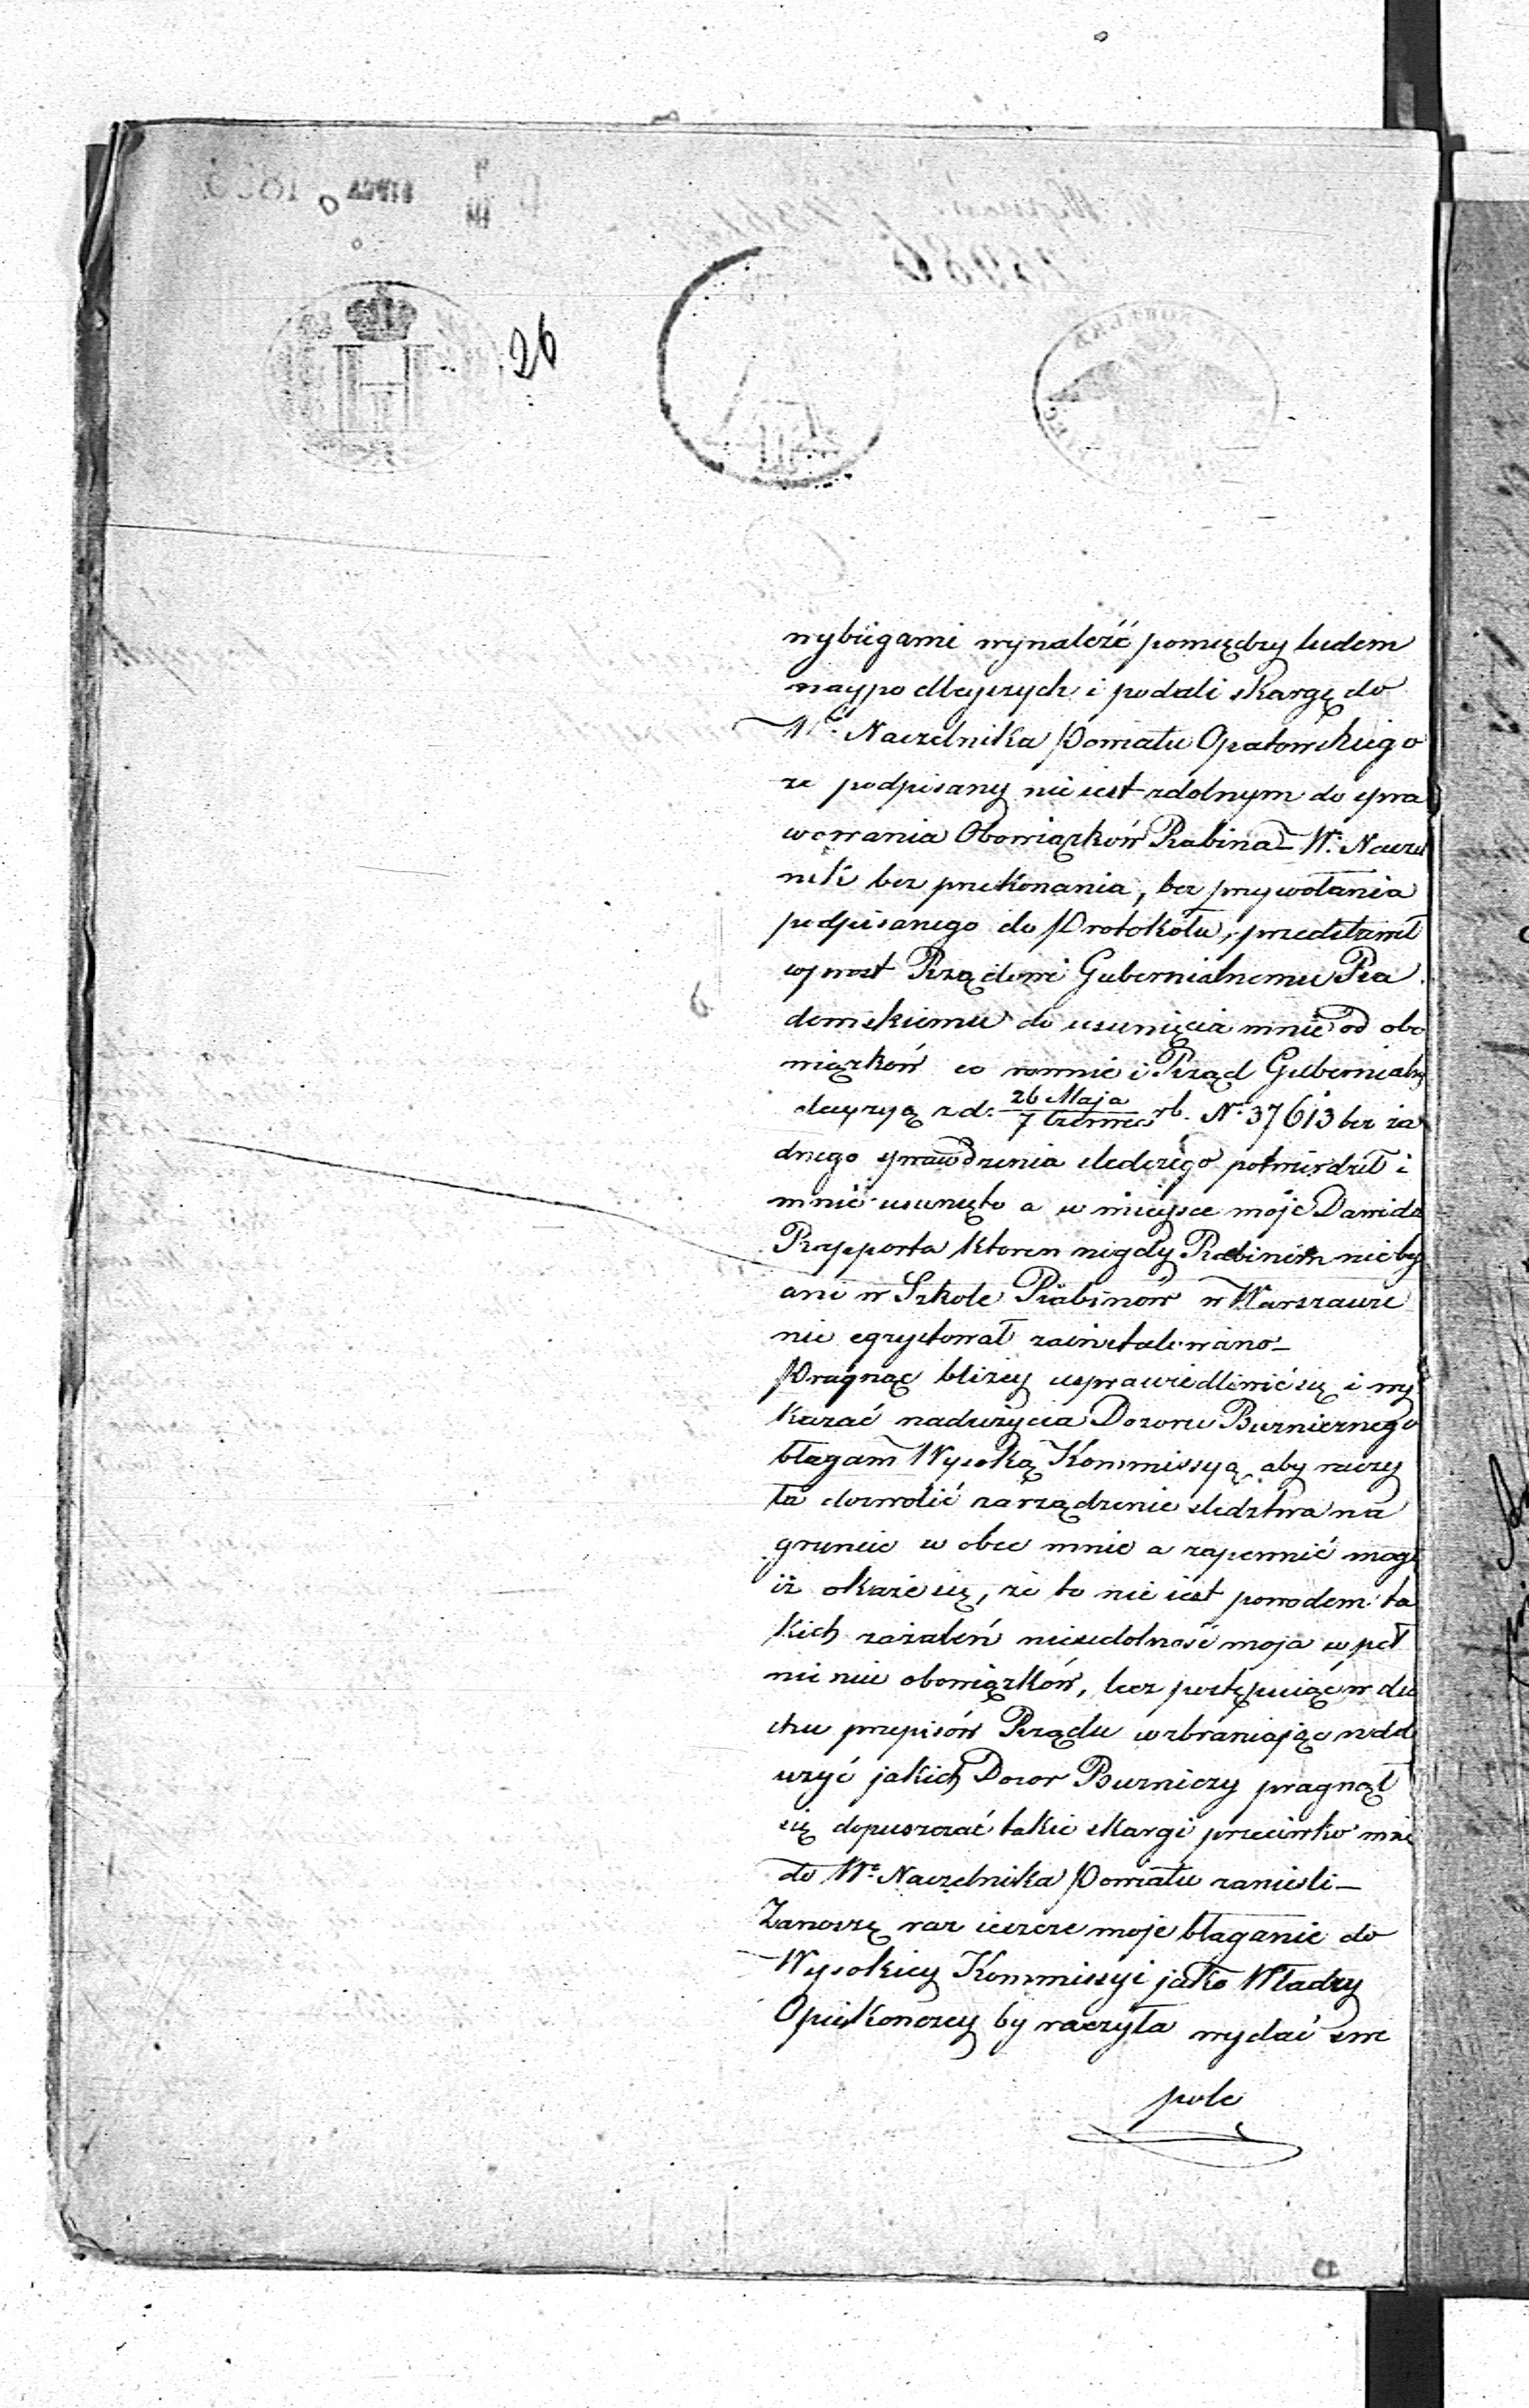 26
wybiegami wynaleźć pomiędzy ludem
naypodleyszych i podali skargę do
Wo. Naczelnika Powiatu Opatowskiego
ze podpisany nie iest zdolnym do spra
wowania Obowiązków Rabina – W. Naczel
nik bez przekonania, bez przywołania
podpisanego do Protokołu, przedstawił
wprost Rządowi Gubernialnemu Ra
domskiemu do usunięcia mnie od obo
wiązków co równie i Rząd Gubernialny
decyzyą z d. 26 Maja / 7 Czerwca rb. No 37613 bez ża
dnego sprawdzenia śledczego potwierdził i
mnie usunęto a w mieysce moje Dawida
Rapporta ktoren nigdy Rabinem nie był
ani w Szkole Rabinów w Warszawie
nie egzystował zainstalowano –
Pragnąc bliżey usprawiedliwić się i wy
kazać nadużycia Dozoru Bużnicznego
błagam Wysoką Kommissyą aby raczy
ła dozwolić zarządzenie śledztwa na
gruncie w obec mnie a zapewnić mogę
iż okaże się, że to nie iest powodem ta
kich zażaleń niezdolność moja w peł
nieniu obowiązków, lecz postępując w du
chu przepisów Rządu wzbraniając nad
użyć jakich Dozor Bużniczy pragnął
się dopuszczać takie skargi przeciwko mnie
do Wo Naczelnika Powiatu zanieśli –
Zanoszę raz ieszcze moje błaganie do
Wysokiey Kommissyi jako Władzy
Opiekończey by raczyła wydać swe
pole